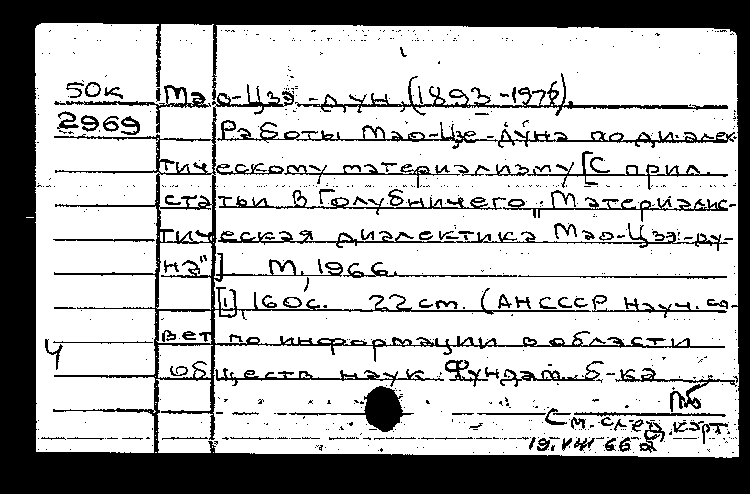 50к Мао-Цзэ-дун, (1893-1976).
2969 Работы Мао-Цзе-Дуна по диалек-
тическому материализму [С прил.
статьи В Голубничего "Материалис-
тическая диалектика Мао-Цзэ-ду-
на"] М, 1966.
[1], 160с. 22 см. (АН СССР Науч. со-
вет по информации в области
Ч
обществ наук Фундам. б-ка
См. след. карт.
19.VIII 66